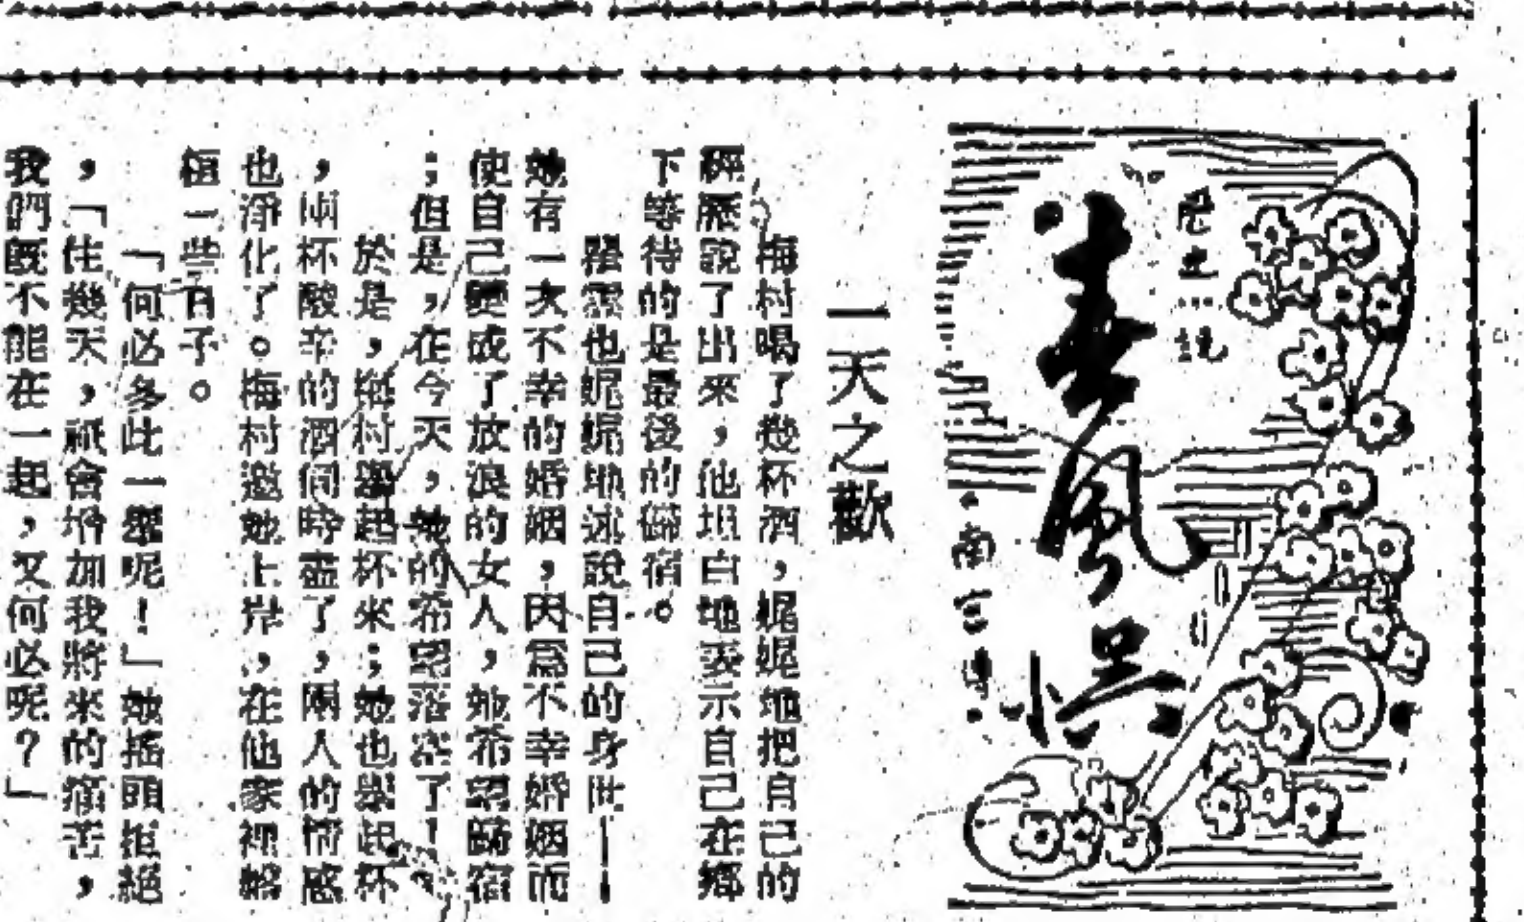 春風悞
南宮博
一天之歡
梅村喝了幾杯酒，娓娓地把自己的
經歷說了出來，他坦白地表示自己在鄉
下等待的是最後的歸宿。
也娓娓地述說自己的身世——
她有一次不幸的婚姻，因爲不幸婚姻而
使自己變成了放浪的女人，她希望歸宿
；但是，在今天，她的希望落空了！
於是，梅村舉起杯來；她也舉起杯
，兩杯酸辛的酒同時盡了，兩人的情感
也淨化了。梅村邀她上岸，在他家裡
一些日子。
「何必多此一舉呢！」她搖頭拒絕
，「住幾天，祇會增加我將來的痛苦，
我們既不能在一起，又何必呢？」